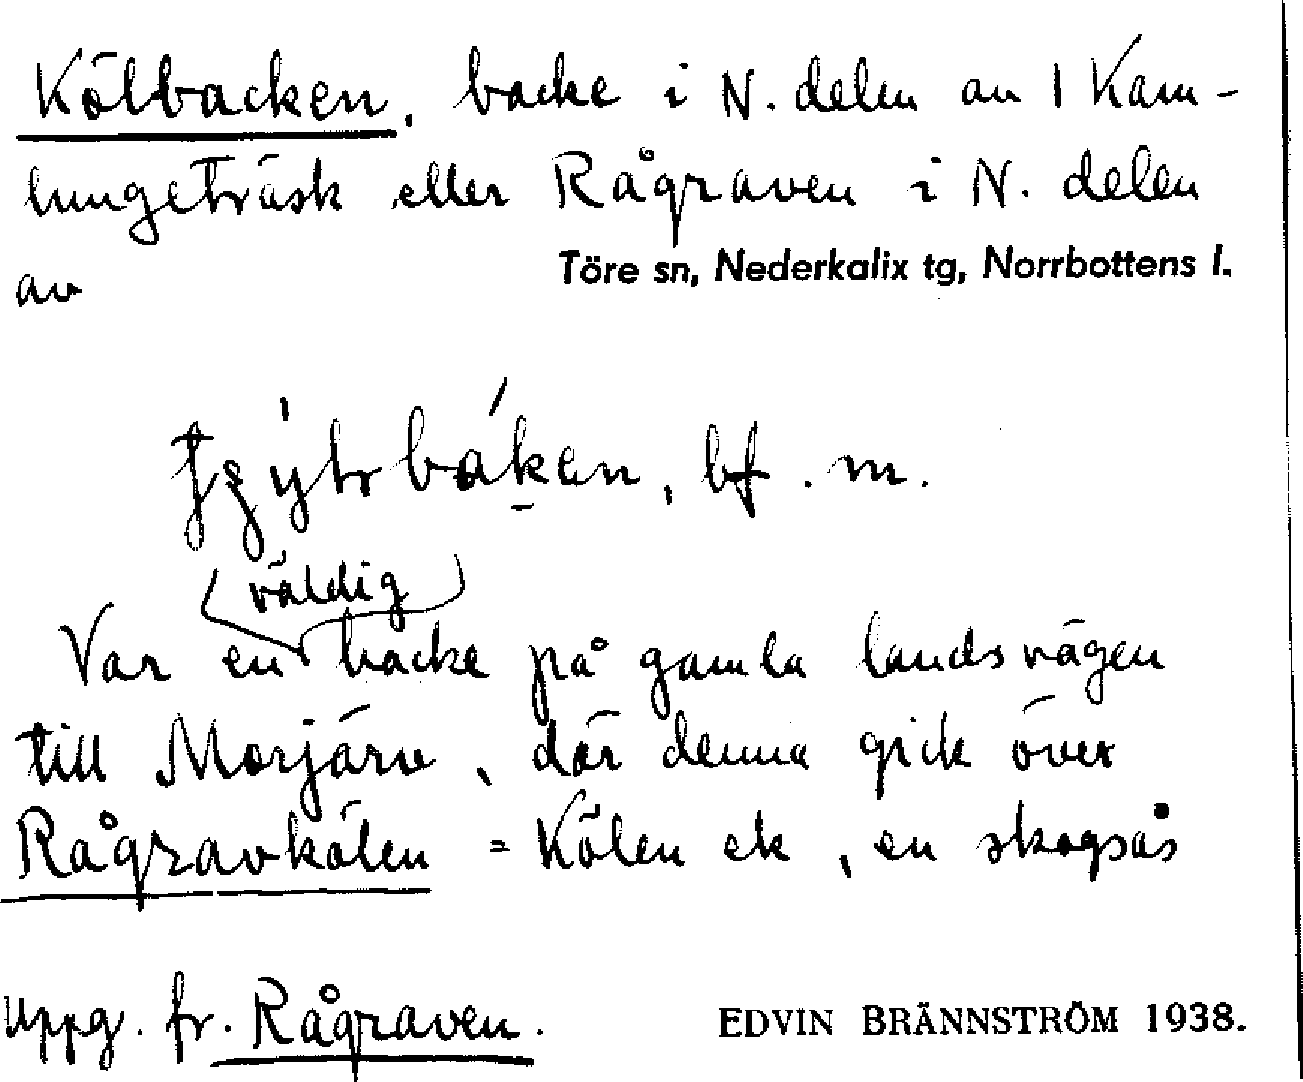 Kölbacken, backe i N. delen av 1 Kam-
lungeträsk eller Rågraven i N. delen
av Töre sn, Nederkalix tg, Norrbottens l.
bf. m.
väldig
Var en backe på gamla landsvägen
till Morjärv, där denna gick över
Rågravkölen = Kölen ek, en skogsås
Uppg. fr. Rågraven. EDVIN BRÄNNSTRÖM 1938.